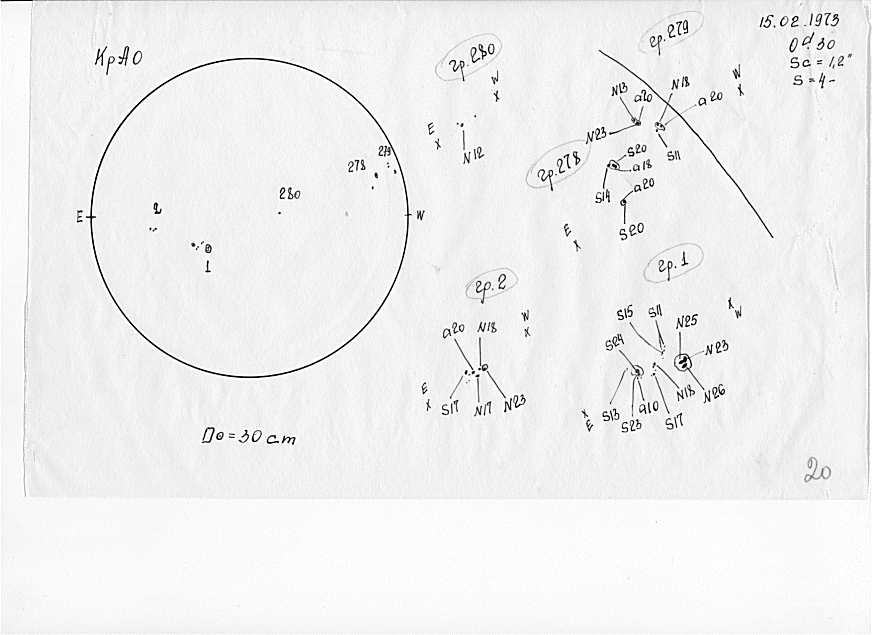 КрАО
15.02.1973
0d.30
Sc = 1,2"
S = 4-
E
W
2
1
280
278
279
D⊙ = 30 cm
гр.280
W
X
E
X
N12
гр.279
N13
a20
N18
a20
W
X
N23
S11
гр.278
S20
a18
S14
a20
S20
E
X
гр.2
a20
N18
W
X
E
X
S17
N17
N23
гр.1
X
W
S15
S11
N25
S24
N23
X
E
S13
S23
a10
S17
N18
N26
20